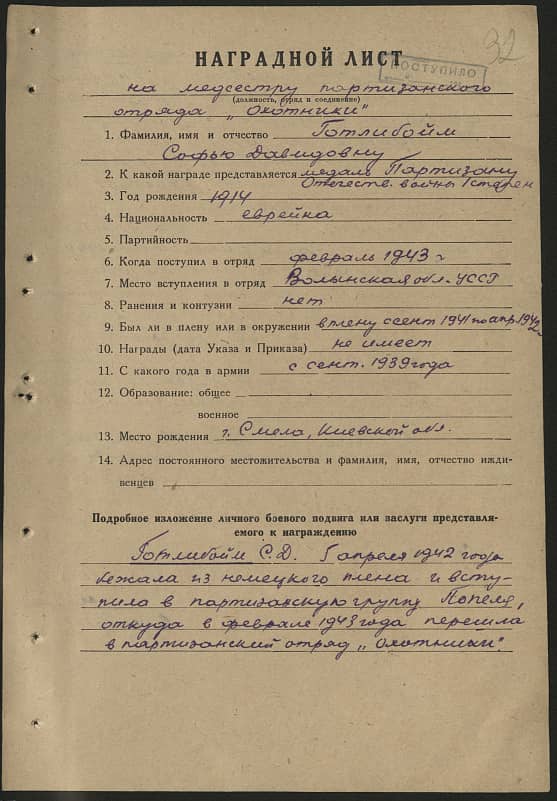 32
НАГРАДНОЙ ЛИСТ
ПОСТУПИЛО
на медсестру партизанского
(должность, отряд и соединение)
отряда „Охотники"
1. Фамилия, имя и отчество Готлибойм
Софью Давидовну
2. К какой награде представляется медаль Партизану
Отечеств. войны I степен
3. Год рождения 1914
4. Национальность еврейка
5. Партийность
6. Когда поступил в отряд февраль 1943 г
7. Место вступления в отряд Волынская обл. УССР
8. Ранения и контузии нет
9. Был ли в плену или в окружении в плену с сент 1941 по апр. 1942 г
10. Награды (дата Указа и Приказа) не имеет
11. С какого года в армии с сент. 1939 года
12. Образование: общее
военное
13. Место рождения г. Смела, Киевской обл.
14. Адрес постоянного местожительства и фамилия, имя, отчество ижди-
венцев
Подробное изложение личного боевого подвига или заслуги представля-
емого к награждению
Готлибойм С.Д. 5 апреля 1942 года
бежала из немецкого плена и всту-
пила в партизанскую группу Попеля,
откуда в феврале 1943 года перешла
в партизанский отряд „Охотники".